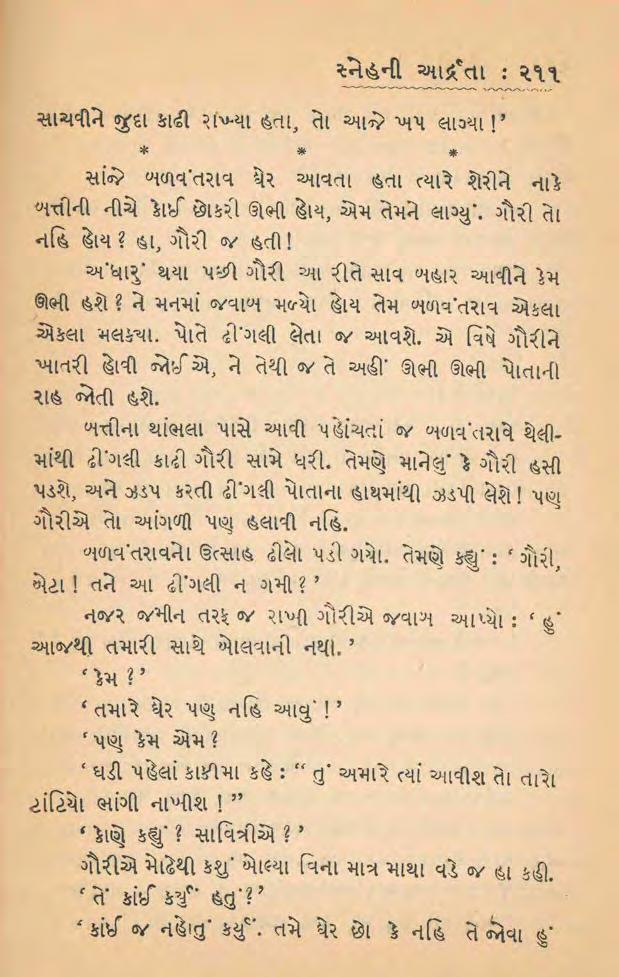 સ્નેહની આર્દ્રતા : ૨૧૧
સાચવીને જુદા કાઢી રાખ્યા હતા, તો આજે ખપ લાગ્યા !’
* * *
સાંજે બળવંતરાવ ઘેર આવતા હતા ત્યારે શેરીને નાકે
બત્તીની નીચે કોઈ છોકરી ઊભી હોય, એમ તેમને લાગ્યું. ગૌરી તો
નહિ હોય ? હા, ગૌરી જ હતી !
અંધારું થયા પછી ગૌરી આ રીતે સાવ બહાર આવીને કેમ
ઊભી હશે ? ને મનમાં જવાબ મળ્યો હોય તેમ બળવંતરાવ એકલા
એકલા મલક્યા. પોતે ઢીંગલી લેતા જ આવશે. એ વિષે ગૌરીને
ખાતરી હોવી જોઈએ, ને તેથી જ તે અહીં ઊભી ઊભી પોતાની
રાહ જોતી હશે.
બત્તીના થાંભલા પાસે આવી પહોંચતાં જ બળવંતરાવે થેલી-
માંથી ઢીંગલી કાઢી ગૌરી સામે ધરી. તેમણે માનેલું કે ગૌરી હસી
પડશે, અને ઝડપ કરતી ઢીંગલી પોતાના હાથમાંથી ઝડપી લેશે ! પણ
ગૌરીએ તો આંગળી પણ હલાવી નહિ.
બળવંતરાવનો ઉત્સાહ ઢીલો પડી ગયો. તેમણે કહ્યું : ‘ ગૌરી,
બેટા ! તને આ ઢીંગલી ન ગમી ? ’
નજર જમીન તરફ જ રાખી ગૌરીએ જવાબ આપ્યો : ‘ હું
આજથી તમારી સાથે બોલવાની નથી. ’
‘ કેમ ? ’
‘ તમારે ઘેર પણ નહિ આવું ! ’
‘ પણ કેમ એમ ?
‘ ઘડી પહેલાં કાકીમા કહે : “ તું અમારે ત્યાં આવીશ તો તારો
ટાંટિયો ભાંગી નાખીશ ! ”
‘ કોણે કહ્યું ? સાવિત્રીએ ? ’
ગૌરીએ મોઢેથી કશું બોલ્યા વિના માત્ર માથા વડે જ હા કહી.
‘ તેં કાંઈ કર્યું હતું ? ’
‘ કાંઈ જ નહોતું કર્યું. તમે ઘેર છો કે નહિ તે જોવા હું